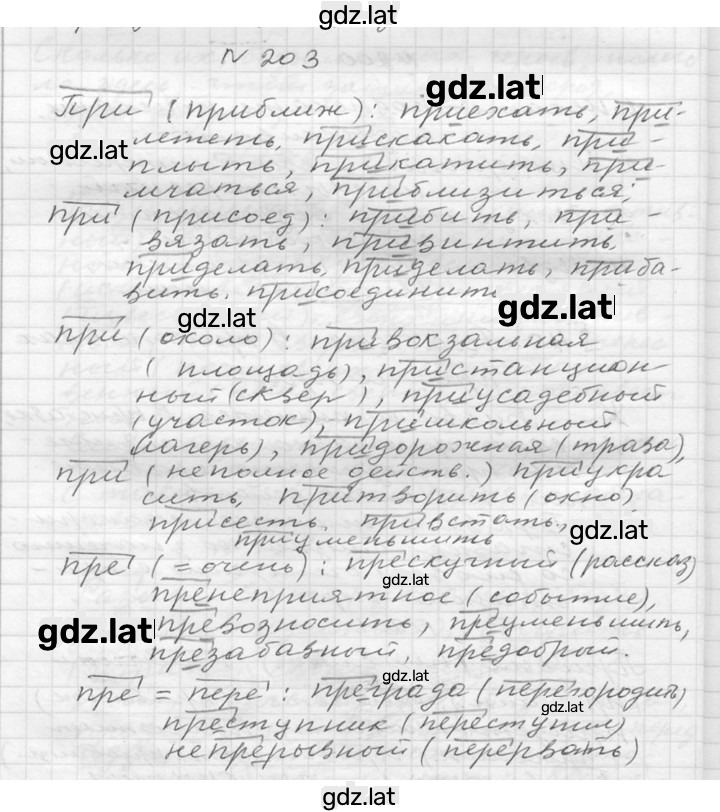 gdz.lat
N 203
gdz.lat
При (приближ): приехать, при-
gdz.lat
лететь, прискакать, при-
плыть, прикатить, при-
мчаться, приблизиться;
при (присоед): прибить, при-
вязать, привинтить,
приделать, приделать, приба-
вить, присоединить
gdz.lat
gdz.lat
при (около): привокзальная
(площадь), пристанцион-
ный (сквер), приусадебный
(участок), пришкольный
(лагерь), придорожная (трава),
при (неполное действ.) приукра
сить, притворить (окно)
присесть, привстать,
gdz.lat
приуменьшить
пре (= очень): прескучный (рассказ)
gdz.lat
пренеприятное (событие),
gdz.lat
превозносить, преуменьшить,
презабавный, предобрый.
gdz.lat
пре = пере: преграда (перегородить)
gdz.lat
преступник (переступил)
непрерывный (перервать)
gdz.lat